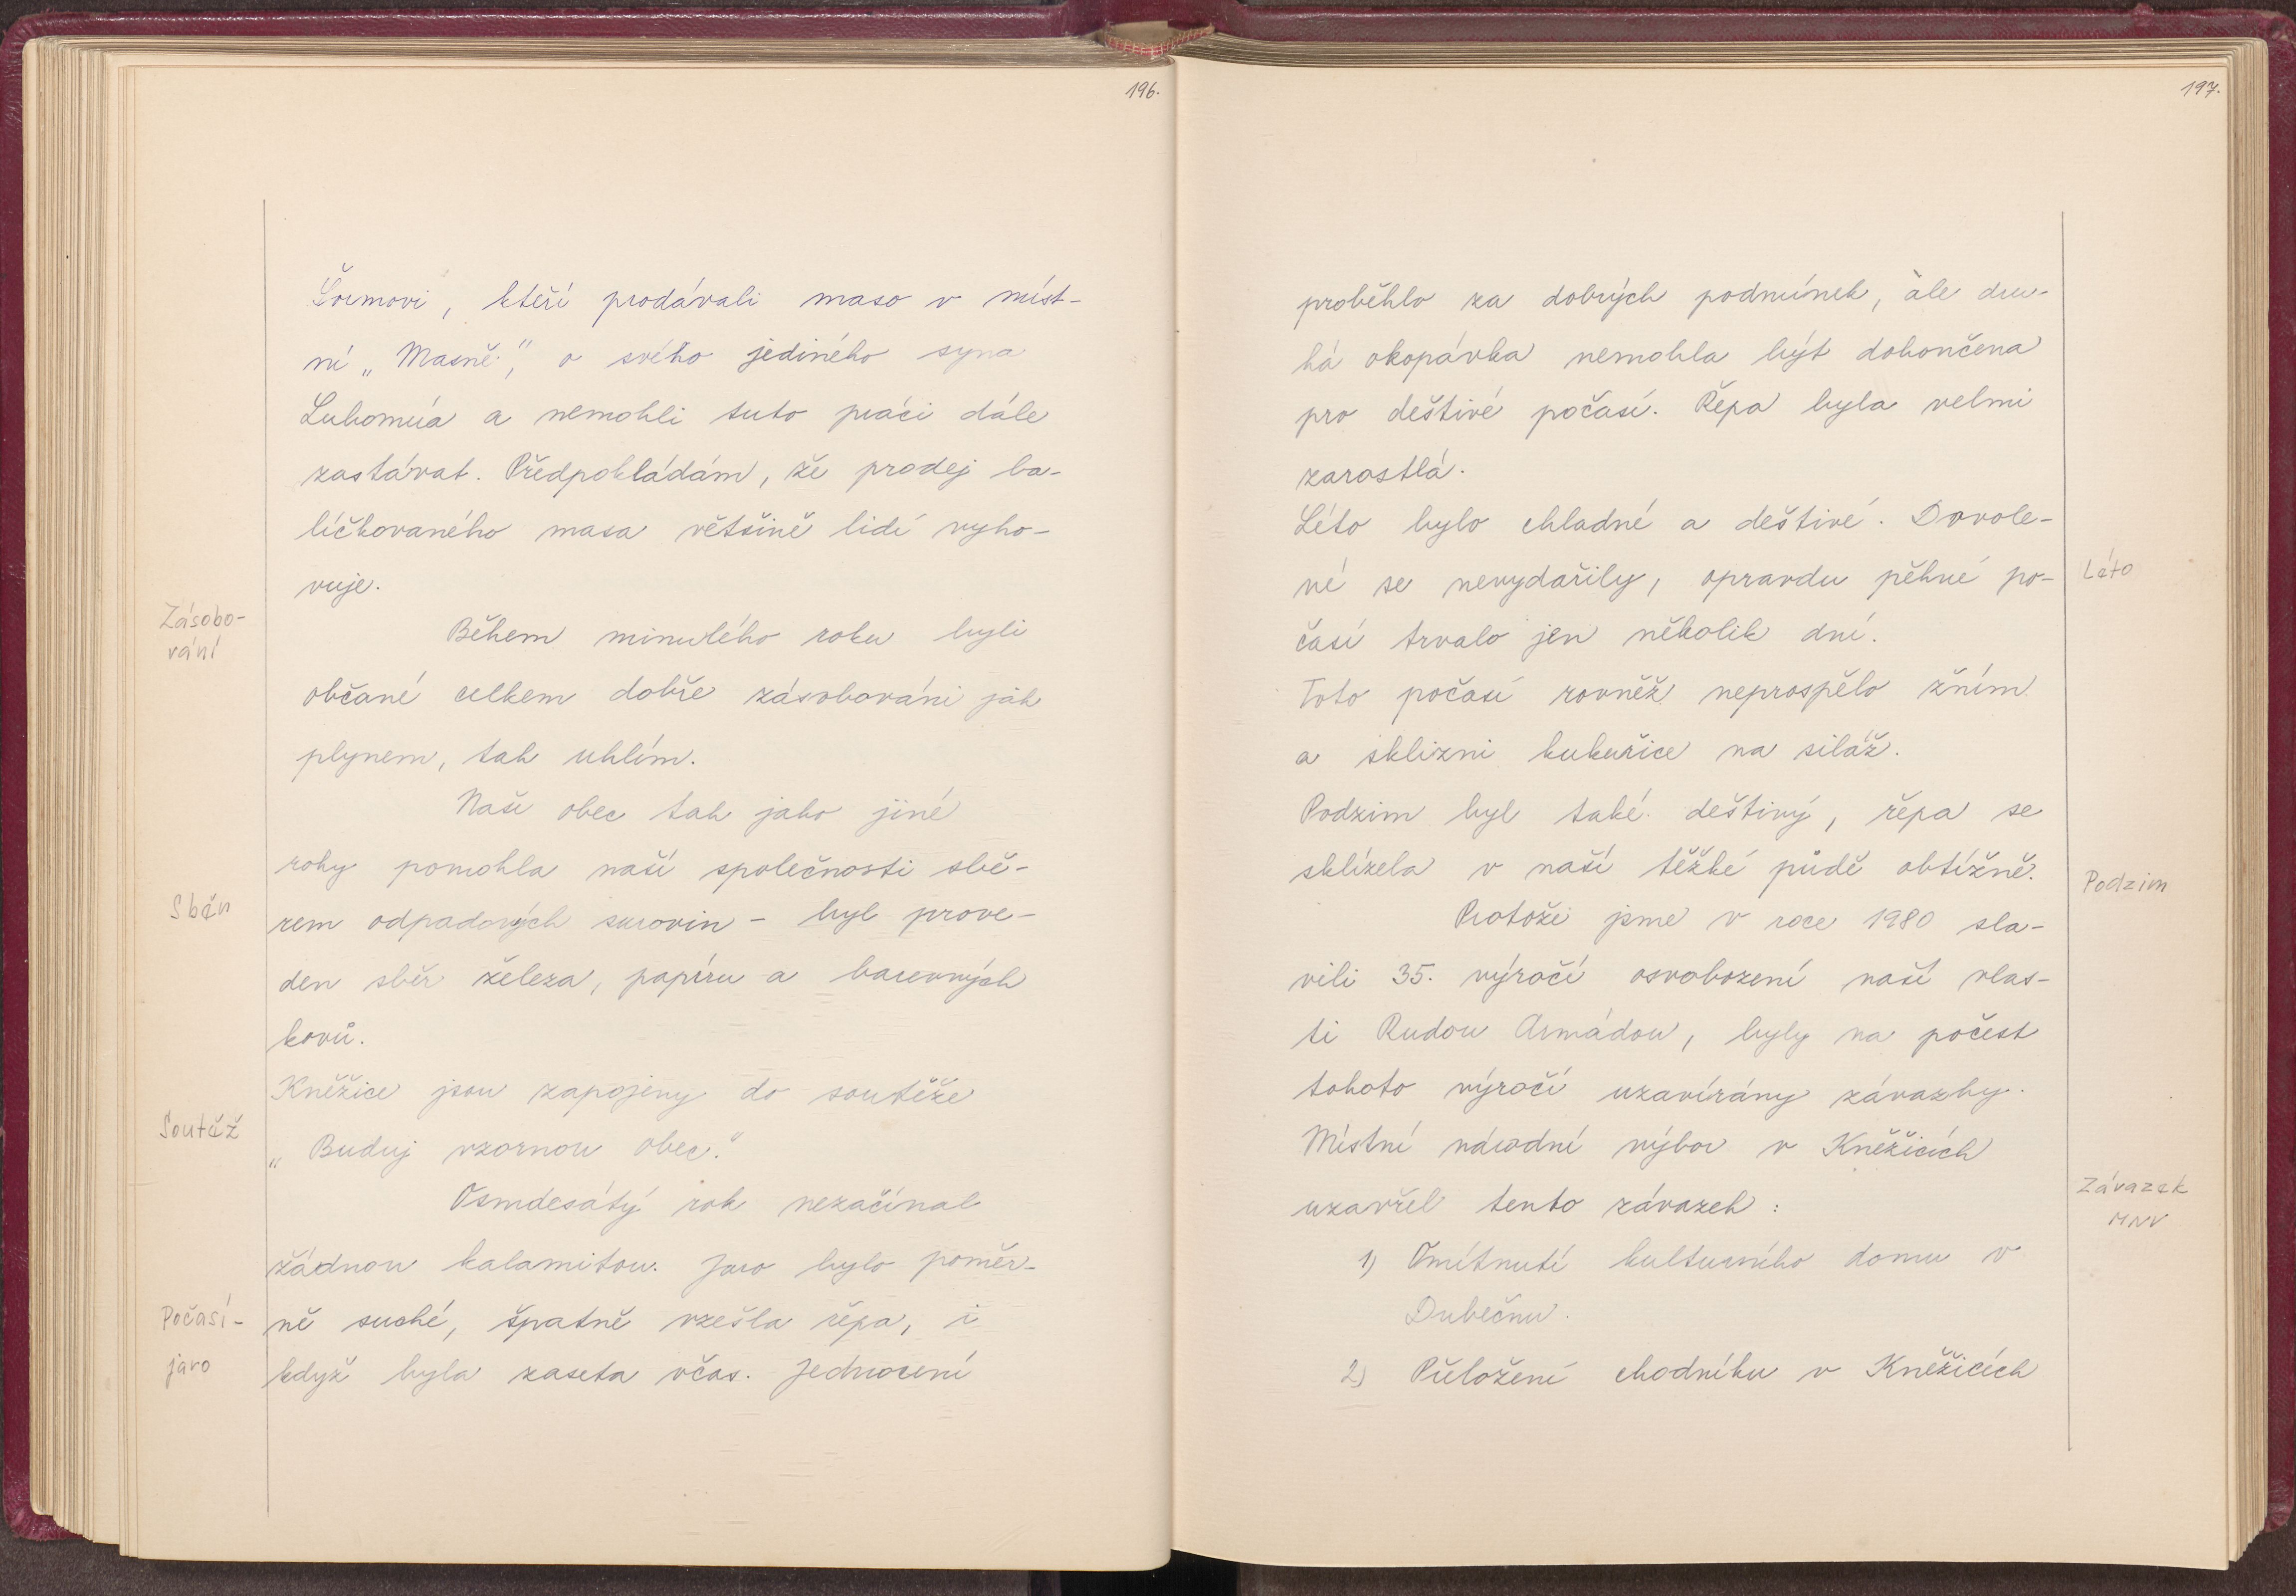 196.
Šormovi, kteří prodávali maso v míst-
ní „Masně", o svého jediného syna
Lubomíra a nemohli tuto práci dále
zastávat. Předpokládám, že prodej ba-
líčkovaného masa většině lidí vyho-
vuje.
Zásobo-
vání
Během minulého roku byli
občané celkem dobře zásobováni jak
plynem, tak uhlím.
Naše obec tak jako jiné
roky pomohla naší společnosti sbě-
Sběr
rem odpadových surovin - byl prove-
den sběr železa, papíru a barevných
kovů.
Kněžice jsou zapojeny do soutěže
Soutěž
„Buduj vzornou obec."
Osmdesátý rok nezačínal
žádnou kalamitou. Jaro bylo poměr-
Počasí-
ně suché, špatně vzešla řepa, i
jaro
když byla zaseta včas. Jednocení
197.
proběhlo za dobrých podmínek, ale dru-
há okopávka nemohla být dokončena
pro deštivé počasí. Řepa byla velmi
zarostlá.
Léto bylo chladné a deštivé. Dovole-
né se nevydařily, opravdu pěkné po-
Léto
časí trvalo jen několik dní.
Toto počasí rovněž neprospělo žním
a sklizni kukuřice na siláž.
Podzim byl také deštivý, řepa se
sklízela v naší těžké půdě obtížně.
Podzim
Protože jsme v roce 1980 sla-
vili 35. výročí osvobození naší vlas-
ti Rudou Armádou, byly na počest
tohoto výročí uzavírány závazky.
Místní národní výbor v Kněžicích
Závazek
MNV
uzavřel tento závazek:
1) Omítnutí kulturního domu v
Dubečnu.
2) Přeložení chodníku v Kněžicích